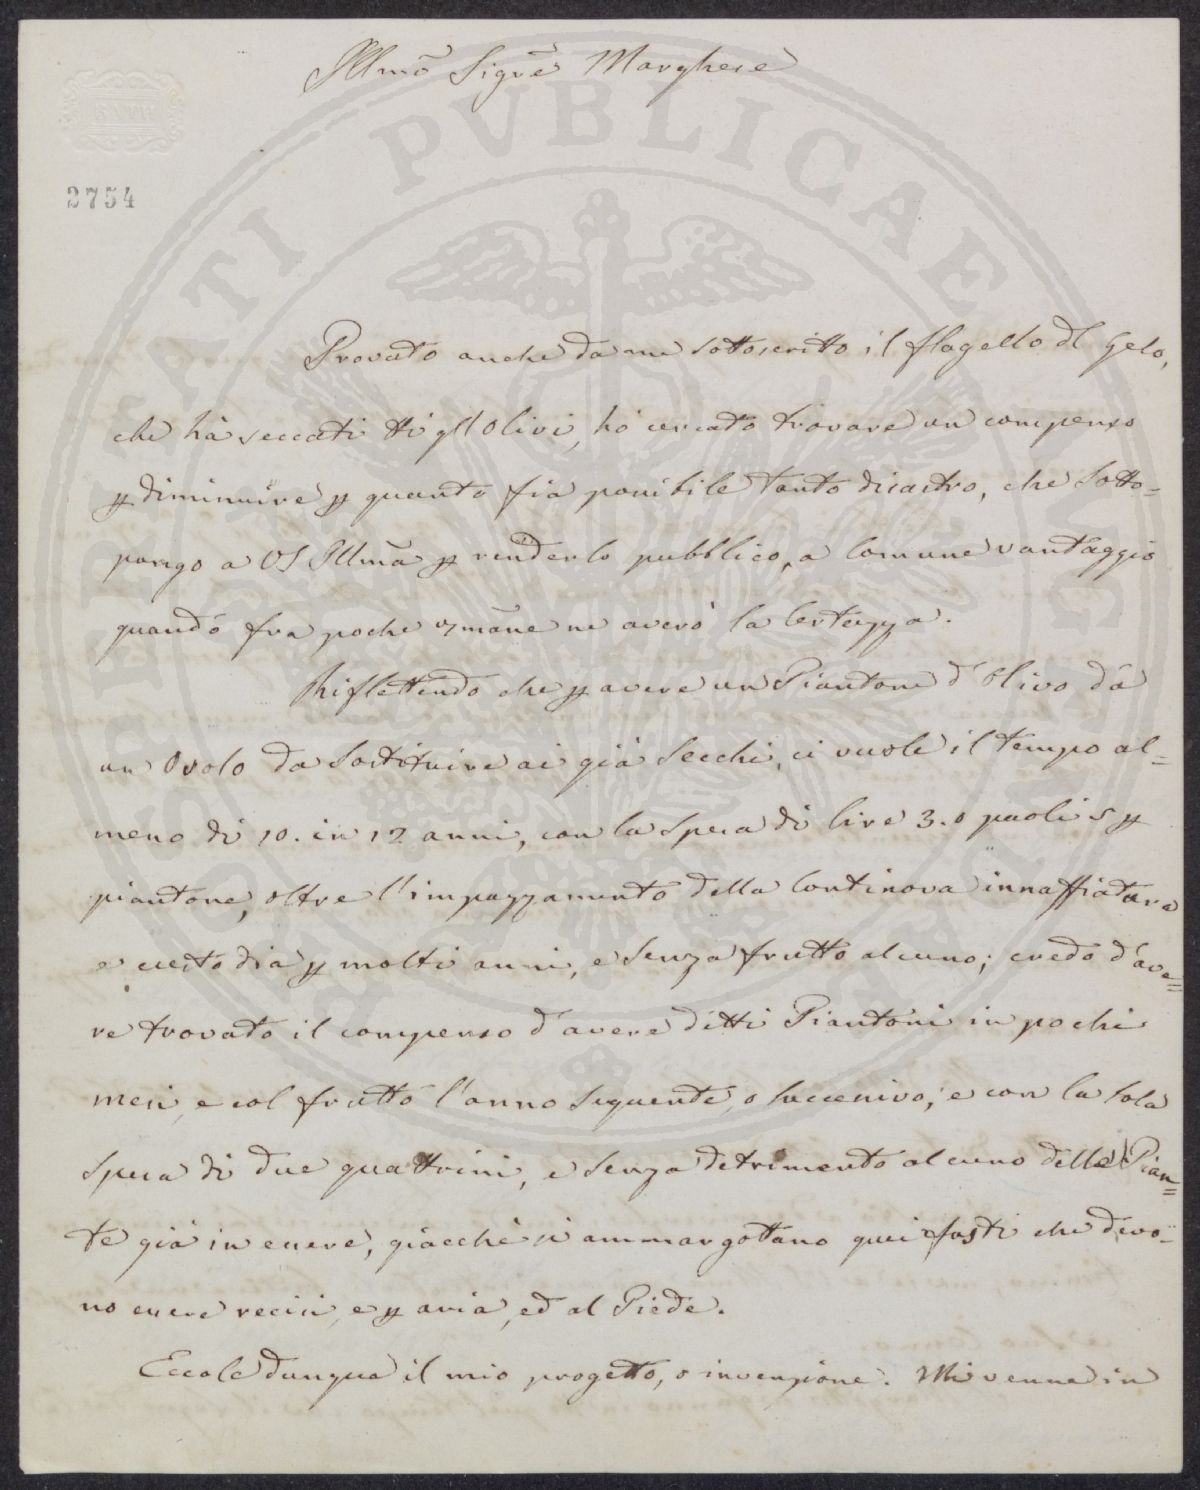 Illmõ Sigrẽ Marghese
2754
Provato anche da me sottoscritto il flagello dl Gelo,
che hà seccati tti gl'Olivi, hò cercato trovare un compenso
p diminuire p quanto fia possibile tanto disastro, che Sotto=
pongo a VS Illmã p renderlo pubblico, a Comune vantaggio
quando fra poche 7mãne ne averò la Certezza.
Riflettendo che p avere un Piantone d'Olivo da
un Ovolo da Sostituire ai già Secchi, ci vuole il tempo al=
meno di 10. in 12 anni, con la Spesa di lire 3. o paoli 5 p
piantone, oltre l'impazzamento della Continova innaffiatura
e custodia p molti anni, e Senza frutto alcuno; credo d'ave=
re trovato il compenso d'avere ditti Piantoni in pochi
mesi, e col frutto l'anno Seguente, o Successivo; e con la Sola
Spesa di due quattrini, e Senza detrimento alcuno delle Pian=
te già in essere, giacchè si ammargottano quei fusti che devo=
no essere recisi, e p aria, ed al Piede.
Eccole dunque il mio progetto, o invenzione. Mi venne in
PVBLICAE